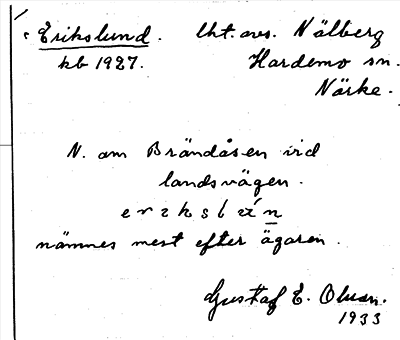 Erikslund. lht. avs. Nälberg
kb 1927. Hardemo sn.
Närke.
N. om Brändåsen vid
landsvägen.
nämnes mest efter ägaren.
Gustaf E. Olsson.
1933